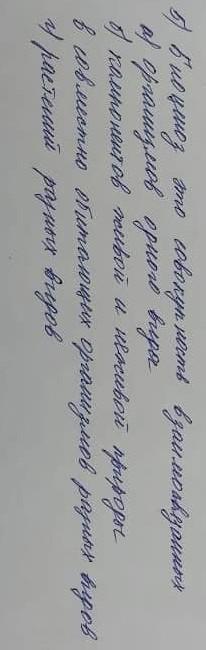 5) Биоценоз это совокупность взаимосвязанных
а) организмов одного вида
б) компонентов живой и неживой природы
в совместно обитающих организмов разных видов
г) растений разных видов